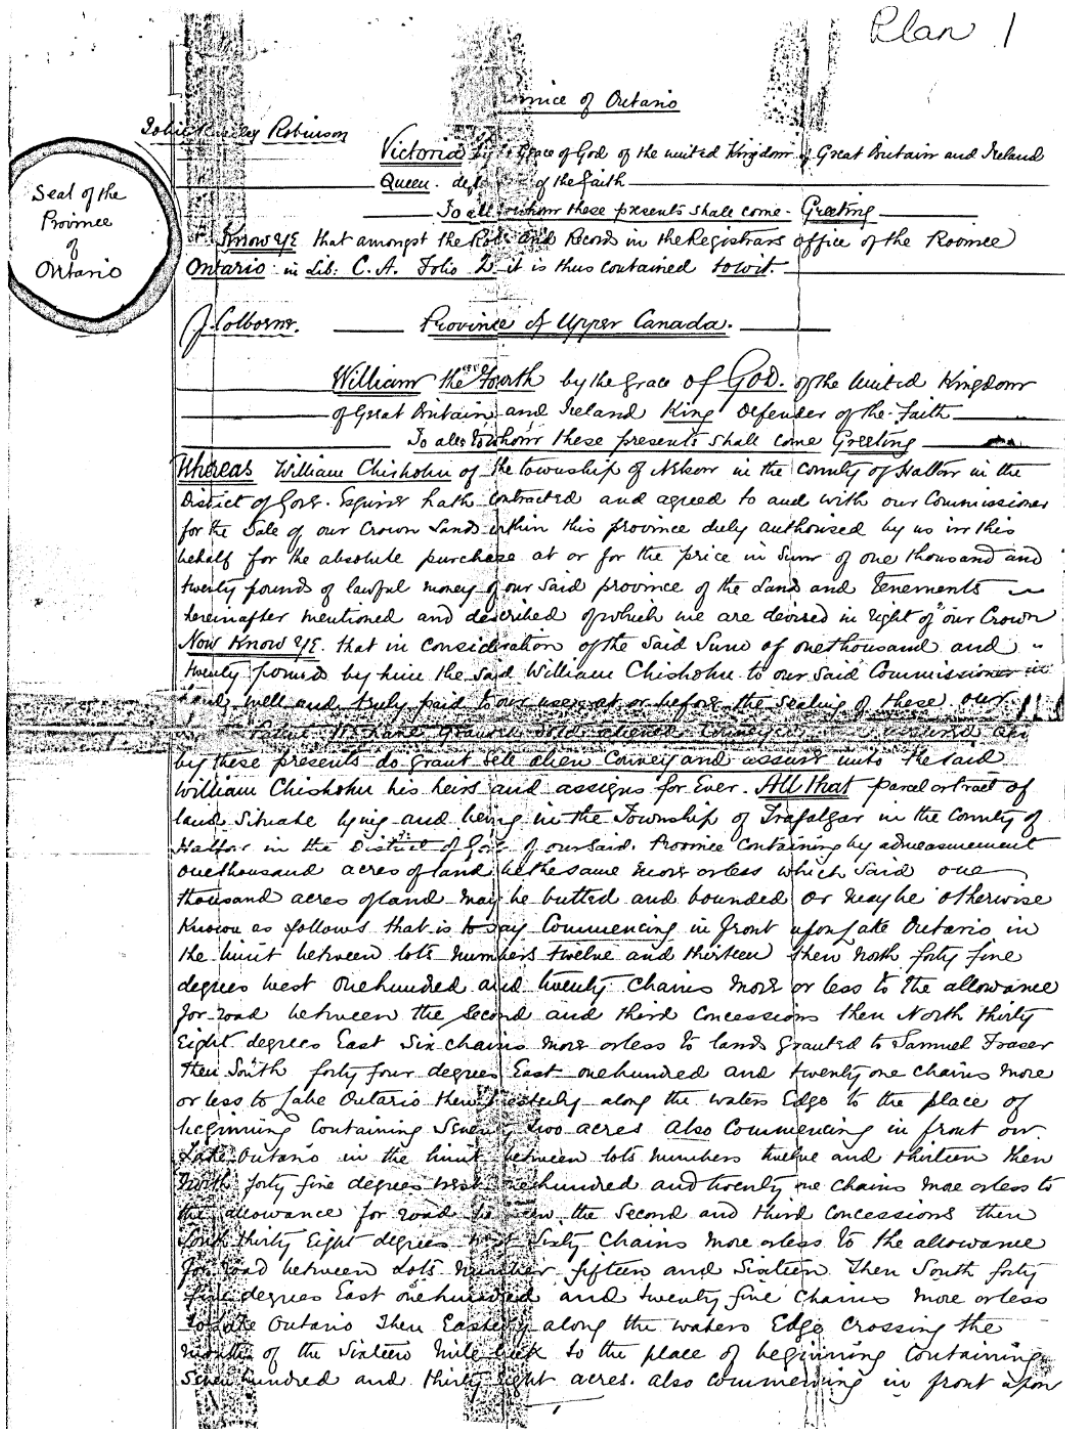 Plan 1
Province of Ontario
John Beverley Robinson
Victoria by the Grace of God of the united Kingdom of Great Britain and Ireland
Queen. of the Faith
To all to whom these presents shall come. Greeting
Seal of the
Province
of
Ontario
Know YE that amongst the Rolls and Records in the Registrars office of the Province
Ontario in Lib: C. A. Folio 2 it is thus contained towit.
J. Colborne. Province of Upper Canada.
William the Fourth by the grace of God. of the United Kingdom
of Great Britain and Ireland King Defender of the Faith
To all to whom these presents shall come Greeting
Whereas William Chisholm of the township of Nelson in the County of Halton in the
District of Gore. Esquire hath contracted and agreed to and with our Commissioner
for the Sale of our Crown Lands within this province duly authorised by us in this
behalf for the absolute purchase at or for the price in Sum of one thousand and
twenty pounds of lawful money of our said province of the Land and Tenements
hereinafter mentioned and described of which we are devised in right of our Crown
Now Know YE. that in consideration of the said Sum of onethousand and
twenty pounds by him the said William Chisholm to our said Commissioner in
hand well and truly paid to our use at or before the sealing of these our
granted sold aliened
by these presents do grant sell alien Convey and assure unto the said
William Chisholm his heirs and assigns for Ever. All that parcel or tract of
land Situate lying and being in the Township of Trafalgar in the County of
Halton in the District of Gore of our said. Province Containing by admeasurement
onethousand acres of land be the same more or less which said one
thousand acres of land may be butted and bounded or may be otherwise
Known as follows that is to say Commencing in front upon Lake Ontario in
the limit between lots numbers twelve and thirteen then North forty five
degrees west onehundred and twenty chains more or less to the allowance
for road between the Second and third Concessions then North thirty
Eight degrees East Six chains more or less to lands granted to Samuel Fraser
then South forty four degrees East onehundred and twenty one chains more
or less to Lake Ontario then Westerly along the waters Edge to the place of
beginning Containing Seventy two acres also Commencing in front on
Lake Ontario in the limit between lots numbers twelve and thirteen then
North forty five degrees west onehundred and twenty one chains more or less to
the allowance for road between the Second and third Concessions then
South thirty Eight degrees West Sixty Chains more or less to the allowance
for road between Lots number fifteen and Sixteen Then South forty
five degrees East onehundred and twenty five Chains more or less
to Lake Ontario Then Easterly along the waters Edge Crossing the
mouth of the Sixteen Mile Creek to the place of beginning Containing
Seven hundred and thirty eight acres. also Commencing in front upon